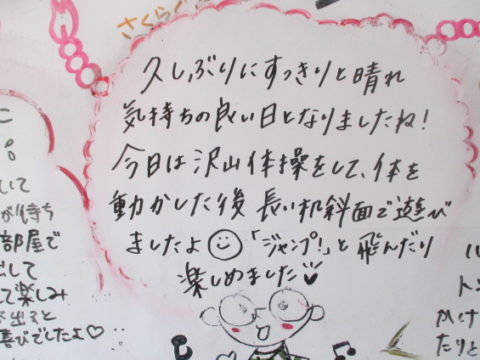 さくらぐ
久しぶりにすっきりと晴れ
気持ちの良い日となりましたね!
今日は沢山体操をして、体を
動かした後 長い机斜面で遊び
ましたよ☺「ジャンプ!」と飛んだり
楽しめました♡
に
。
いて
が待ち
部屋で
出して
て楽しみ
が出ると
喜びでしたよ♡
ハ
かけ
たりと